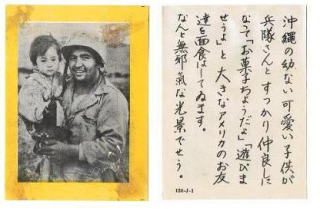 沖縄の幼ない可愛い子供が
兵隊さんとすっかり仲良しに
なって「お菓子ちょうだよ」「遊びま
せうよ」と大きなアメリカのお友
達を面食はしてゐます。
なんと無邪氣な光景でせう。
128-J-1